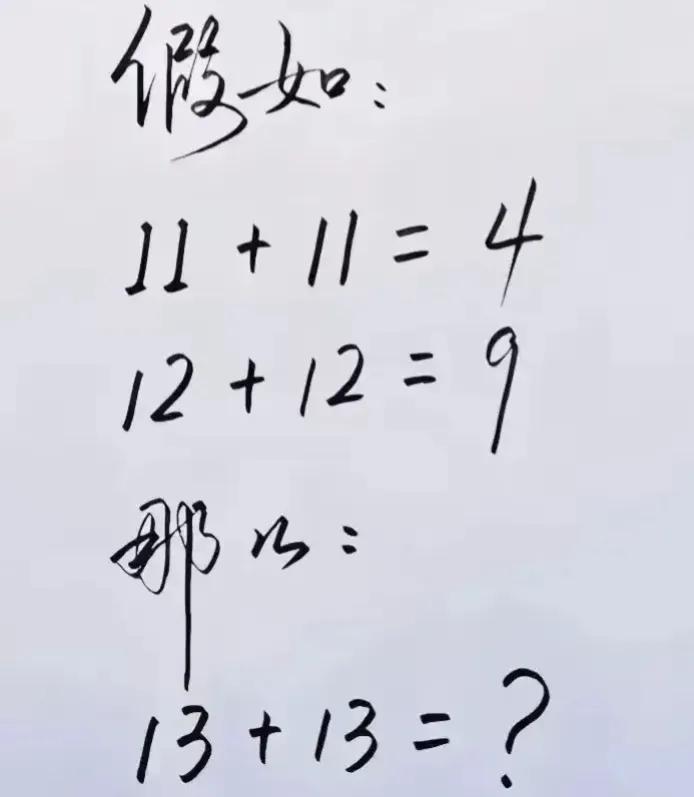 假如:
11 + 11 = 4
12 + 12 = 9
那么:
13 + 13 = ?